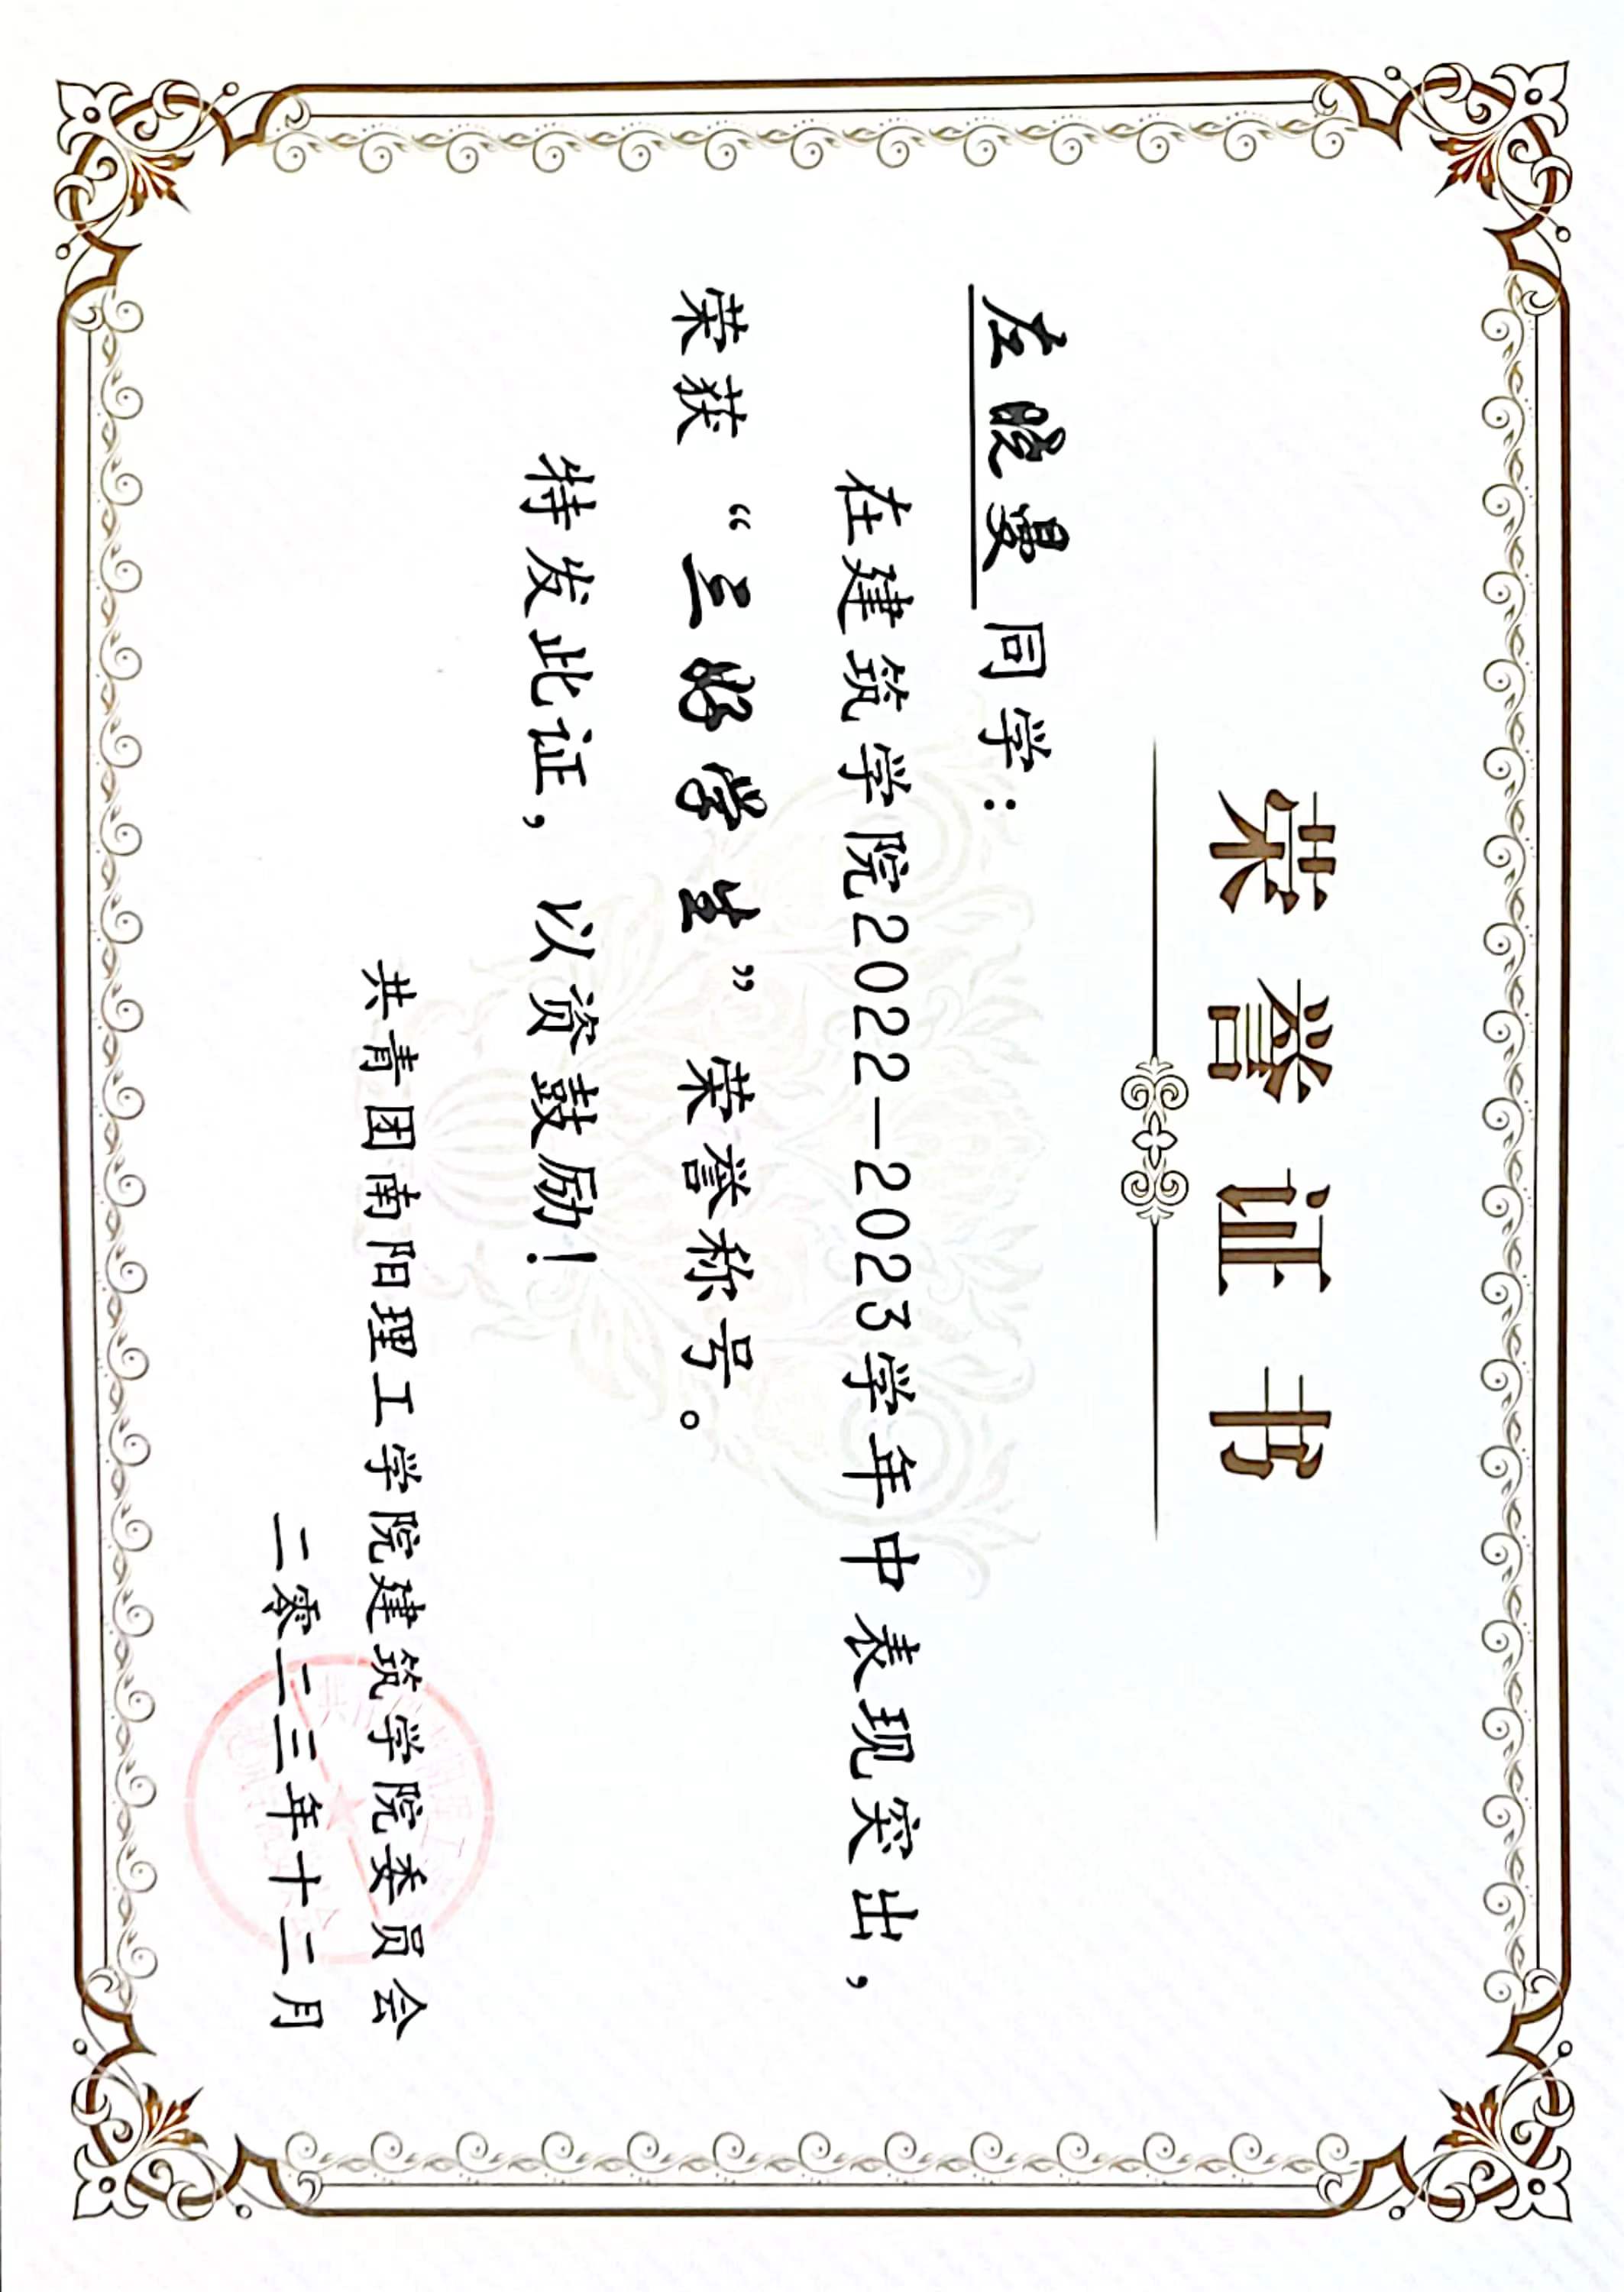 荣誉证书
左晓曼同学：
在建筑学院2022—2023学年中表现突出，
荣获“三好学生”荣誉称号。
特发此证，以资鼓励！
共青团南阳理工学院建筑学院委员会
二零二三年十二月